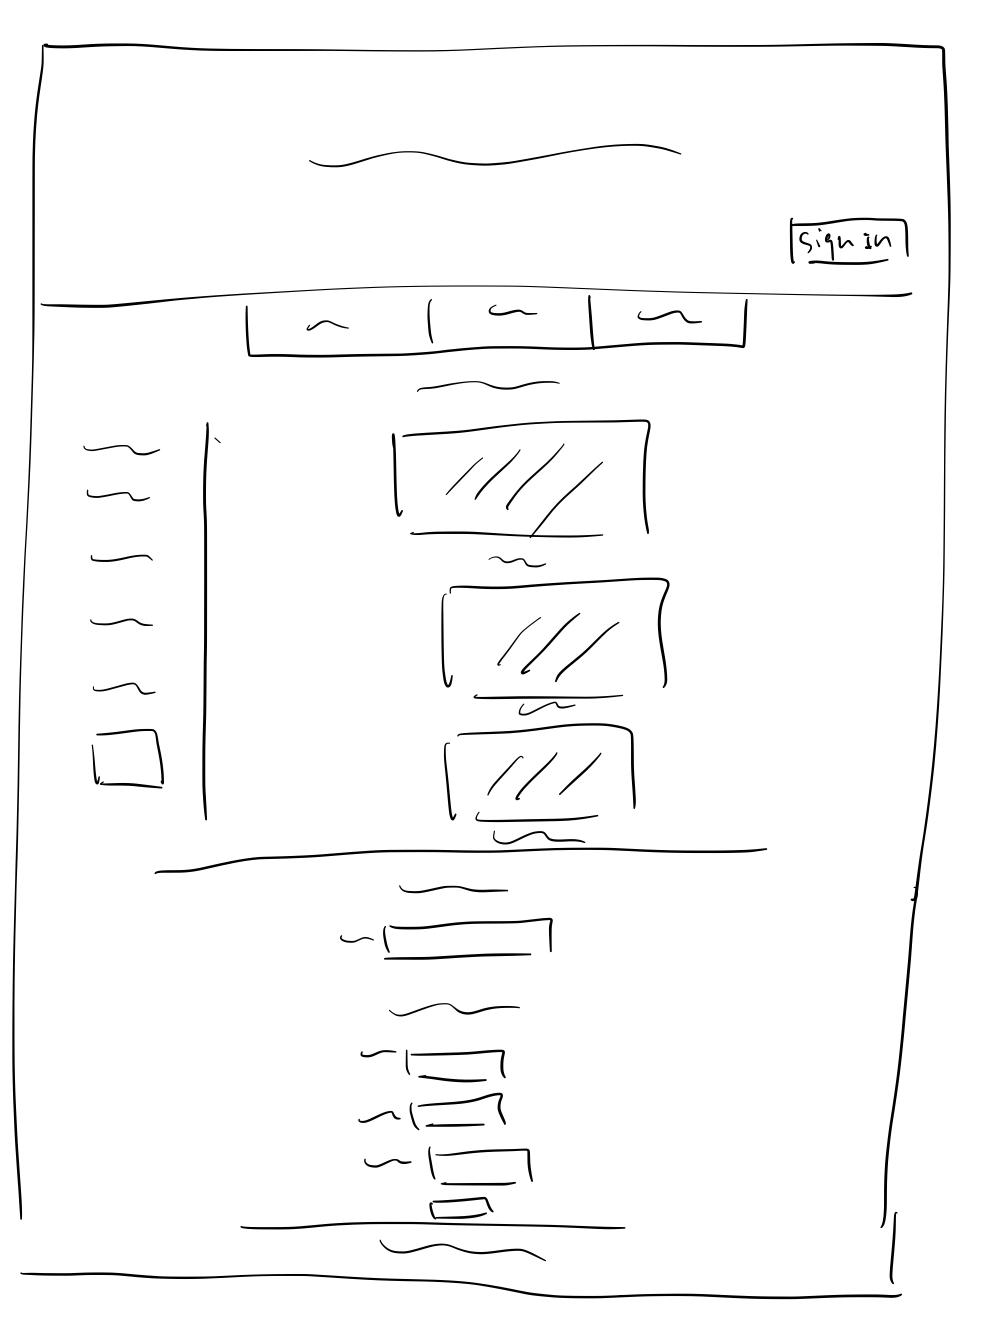 Sign in